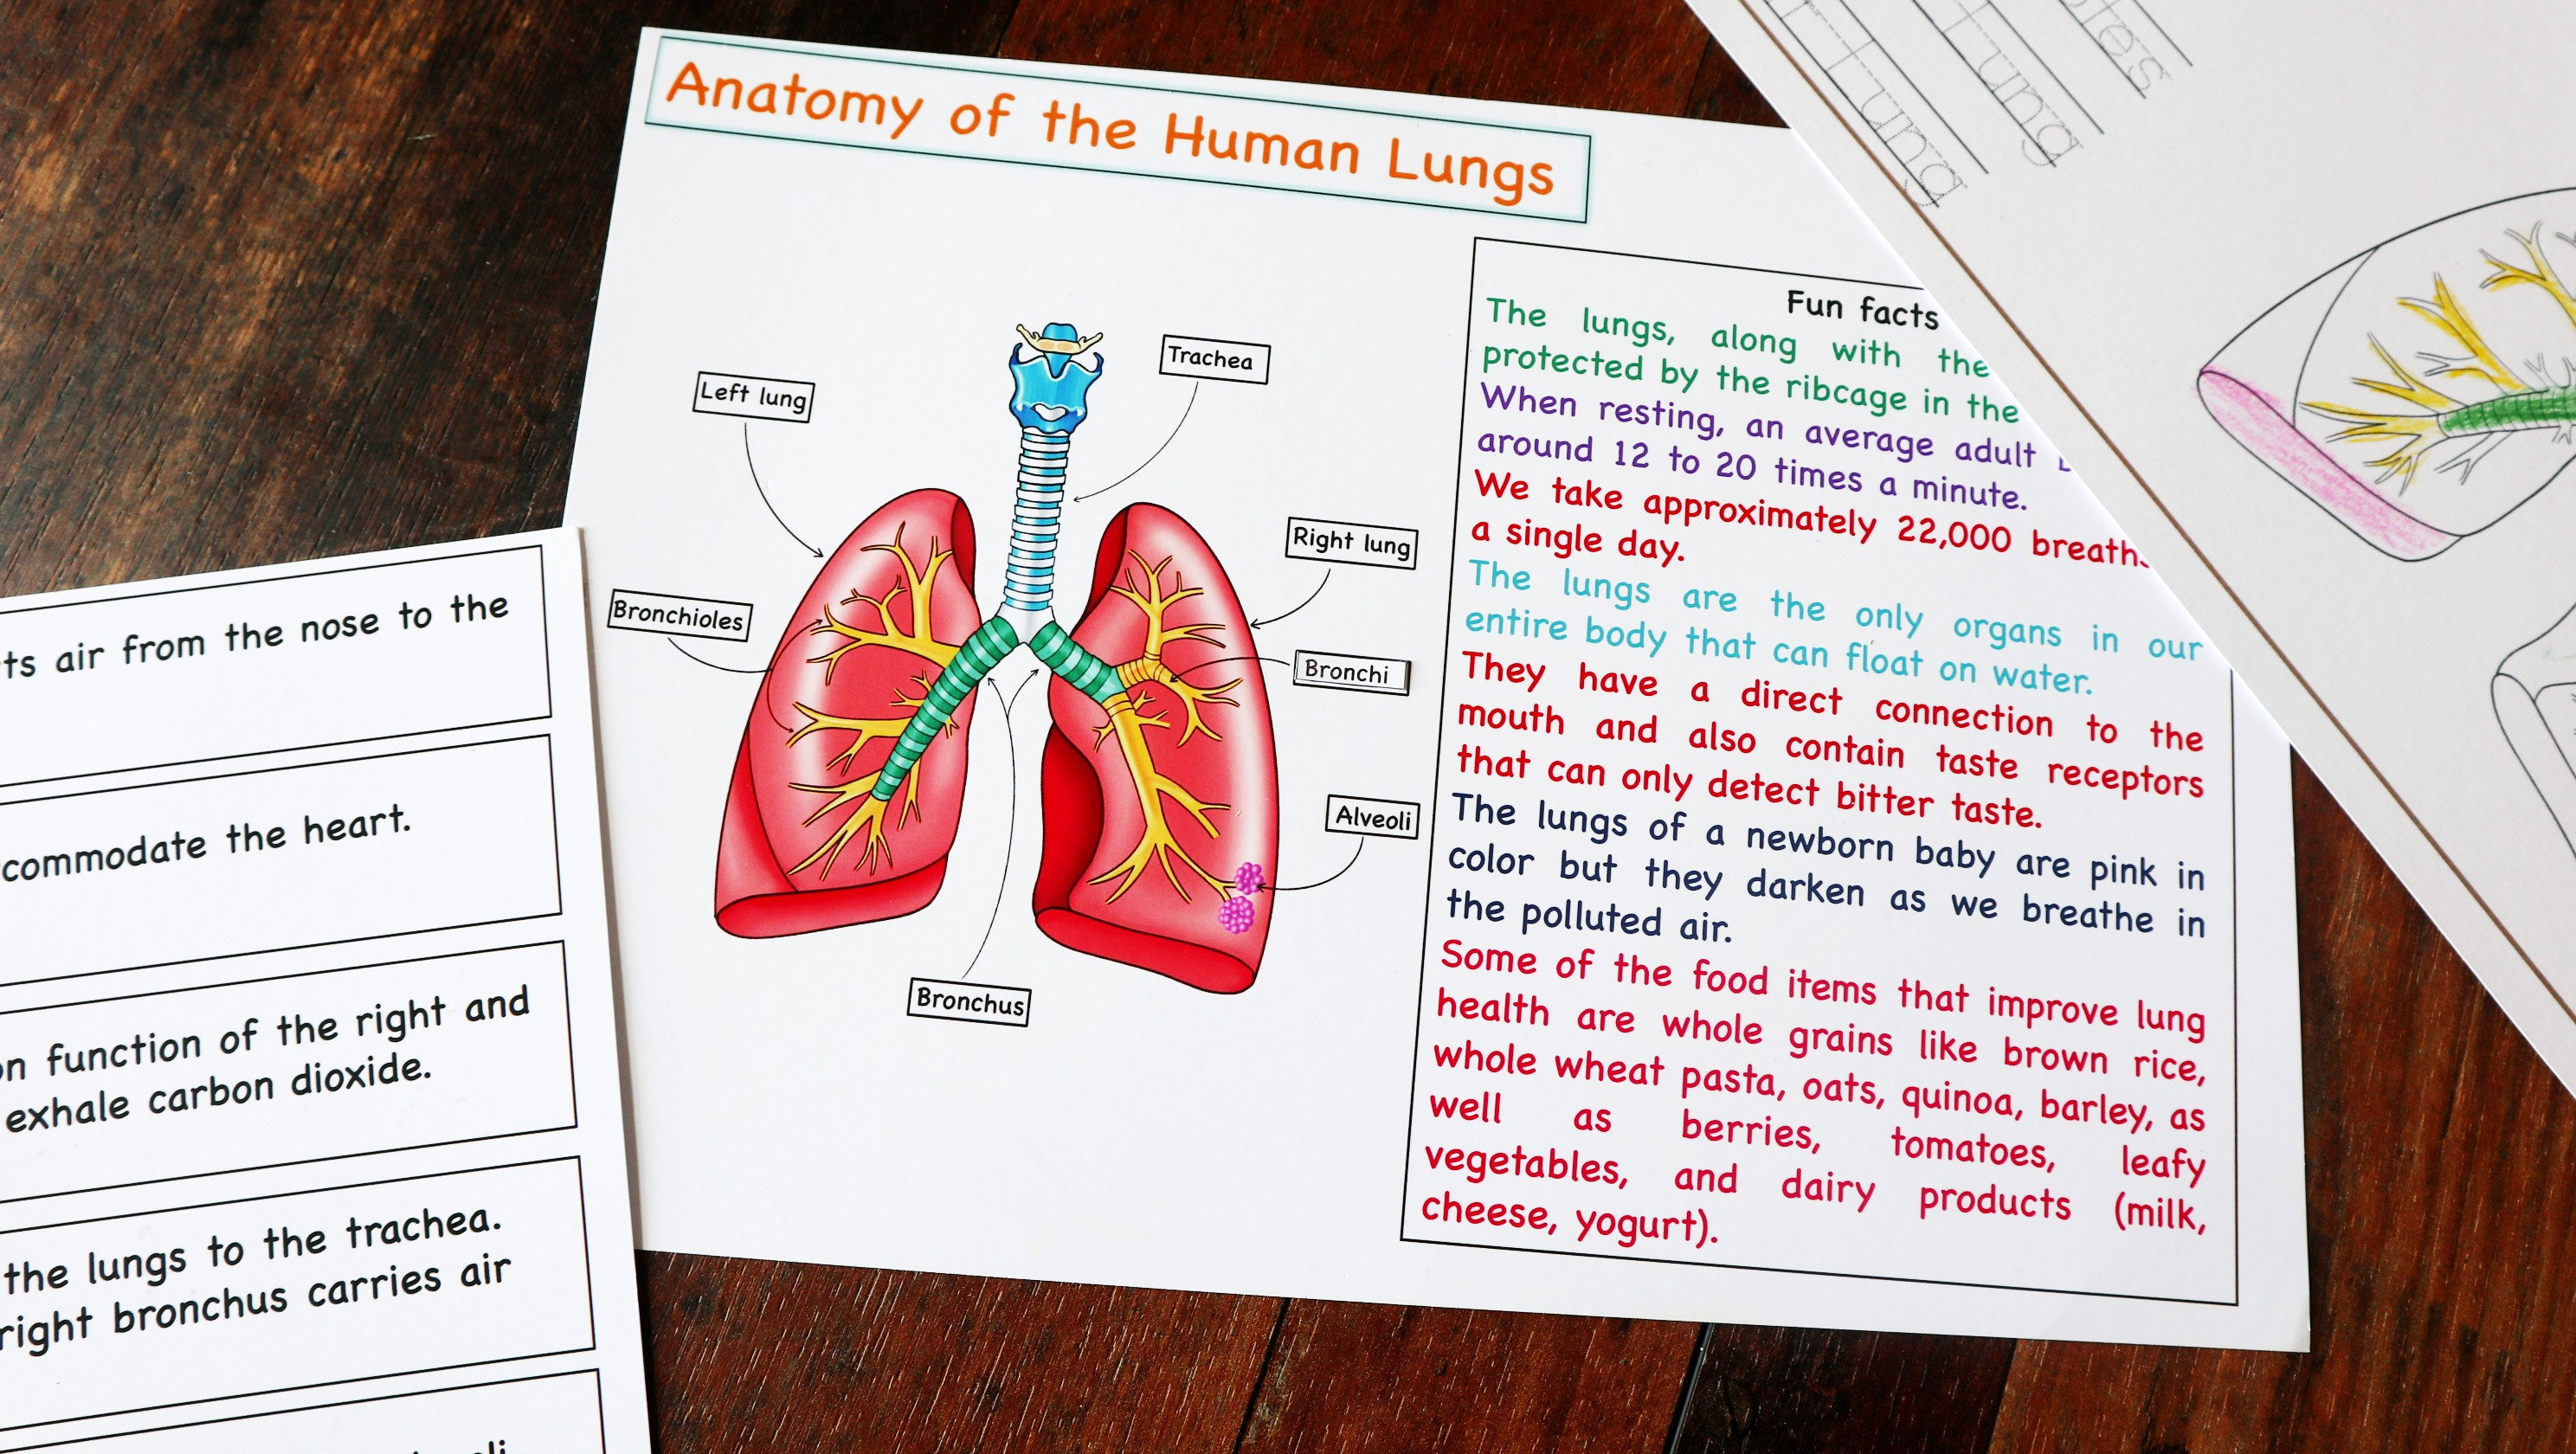 Anatomy of the Human Lungs
Left lung
Trachea
Right lung
Bronchioles
Bronchi
Alveoli
Bronchus
Fun facts
The lungs, along with the
protected by the ribcage in the
When resting, an average adult
around 12 to 20 times a minute.
We take approximately 22,000 breath
a single day.
The lungs are the only organs in our
entire body that can float on water.
They have a direct connection to the
mouth and also contain taste receptors
that can only detect bitter taste.
The lungs of a newborn baby are pink in
color but they darken as we breathe in
the polluted air.
Some of the food items that improve lung
health are whole grains like brown rice,
whole wheat pasta, oats, quinoa, barley, as
well as berries, tomatoes, leafy
vegetables, and dairy products (milk,
cheese, yogurt).
ts air from the nose to the
commodate the heart.
on function of the right and
exhale carbon dioxide.
the lungs to the trachea.
right bronchus carries air
lung
lung